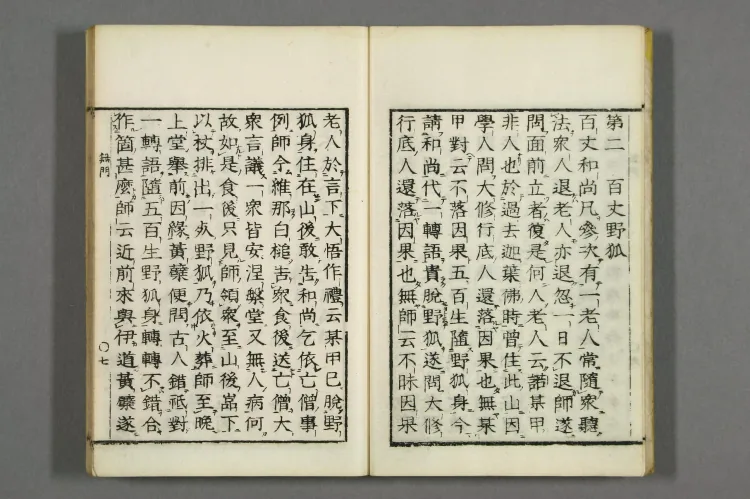 第二 百丈野狐
百丈和尚凡參次有一老人常隨衆聽
法衆人退老人亦退忽一日不退師遂
問面前立者復是何人老人云諾某甲
非人也於過去迦葉佛時曾住此山因
學人問大修行底人還落因果也無某
甲對云不落因果五百生墮野狐身今
請和尚代一轉語貴脫野狐遂問大修
行底人還落因果也無師云不昧因果
老人於言下大悟作禮云某甲已脫野
狐身住在山後敢告和尚乞依亡僧事
例師令維那白槌告衆食後送亡僧大
衆言議一衆皆安涅槃堂又無人病何
故如是食後只見師領衆至山後嵓下
以杖挑出一死野狐乃依火葬師至晚
上堂擧前因緣黃蘗便問古人錯祗對
一轉語墮五百生野狐身轉轉不錯合
作箇甚麼師云近前來與伊道黃蘗遂
無門
〇七